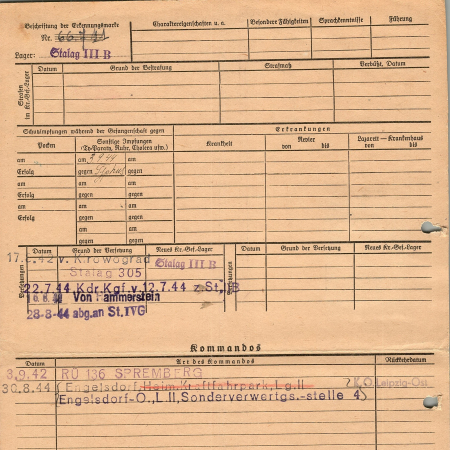 Beschriftung der Erkennungsmarke
Nr.
Lager: Stalag III B
Charaktereigenschaften u. a.
Besondere Fähigkeiten
Sprachkenntnisse
Führung
Strafen im Kr.-Gef.-Lager
Datum
Grund der Bestrafung
Strafmaß
Verbüßt, Datum
Schutzimpfungen während der Gefangenschaft gegen
Erkrankungen
Pocken
Sonstige Impfungen
(Ty-Paraty, Ruhr, Cholera usw.)
Krankheit
Revier
von bis
Lazarett — Krankenhaus
von bis
am am am
Erfolg gegen gegen
am am am
Erfolg gegen gegen
am am am
Erfolg gegen gegen
am am
gegen gegen
Versetzungen
Datum
Grund der Versetzung
Neues Kr.-Gef.-Lager
Versetzungen
Datum
Grund der Versetzung
Neues Kr.-Gef.-Lager
v. Kirowograd
Stalag 305
Stalag III B
22.7.44 Kdr.Kgf.v.12.7.44 z.St.
Von Hammerstein
28-8-44 abg.an St.IVG
Kommandos
Datum
Art des Kommandos
Rückkehrdatum
3.9.42 RÜ 136 SPREMBERG
30.8.44 (Engelsdorf, Heim.Kraftfahrpark, Lg.II
K.O. Leipzig-Ost
Engelsdorf-O.,L.II,Sonderverwertgs.-stelle 4)